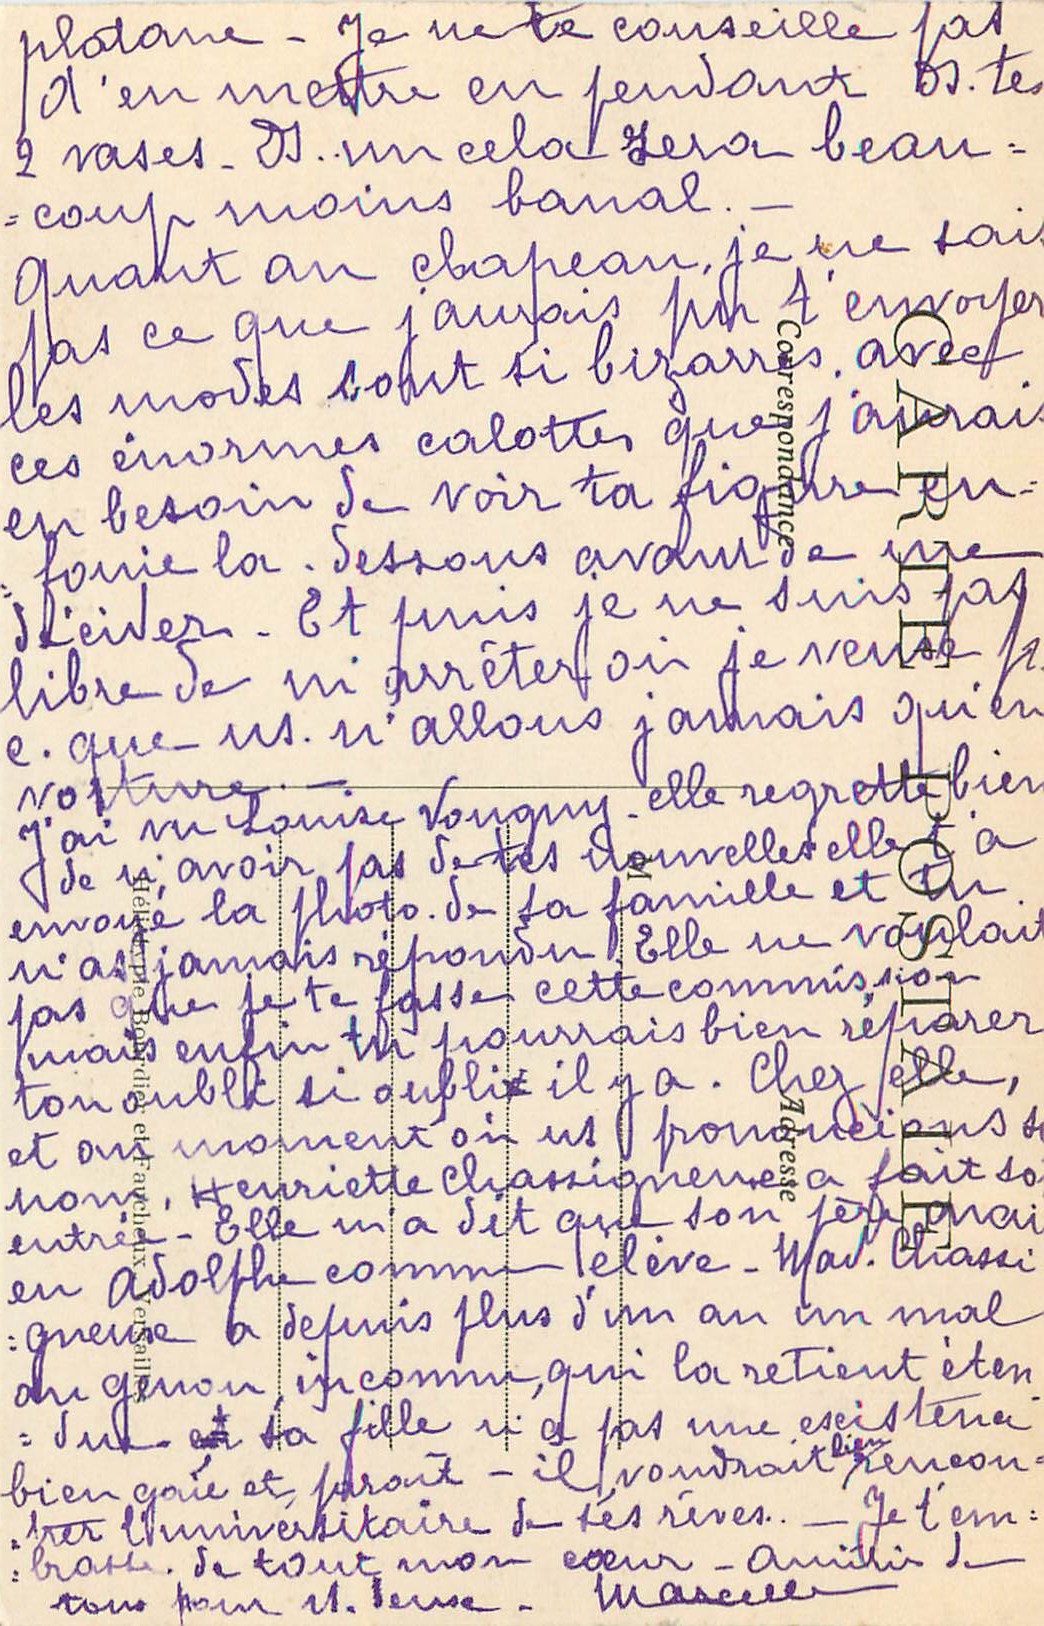 platane – Je ne te conseille pas
d'en mettre en pendant ds. tes
2 vases – Ds. un cela sera beau=
=coup moins banal. –
Quant au chapeau, je ne sais
pas ce que j'aurais pu t'envoyer
les modes sont si bizarres, avec
ces énormes calottes que j'aurais
eu besoin de voir ta figure en=
=fouie la-dessous avant de me
décider – Et puis je ne suis pas
libre de m'arrêter où je veux p.
c. que ns. n'allons jamais qu'en
voiture. –
J'ai vu Louise Vougny – elle regrette bien
de n'avoir pas de tes nouvelles elle t'a
envoyé la photo. de sa famille et tu
n'as jamais répondu. Elle ne voulait
pas que je te fasse cette commission
mais enfin tu pourrais bien réparer
ton oubli si oubli il y a. Chez elle,
et au moment où ns prononcions son
nom, Henriette Chassigneux a fait so
entrée – Elle m'a dit que son père
en Adolphe comme élève – Mad. Chassi
=gneux a depuis plus d'un an un mal
au genou, inconnu, qui la retient éten
=due et sa fille n'a pas une existence
bien gaie et, paraît-il, voudrait bien rencon=
=trer l'universitaire de ses rêves. – Je t'em=
=brasse de tout mon cœur – Amitiés de
tous pour
Marcelle
CARTE POSTALE
Correspondance
Adresse
M
Héliotypie Bourdier et Faucheux Versailles